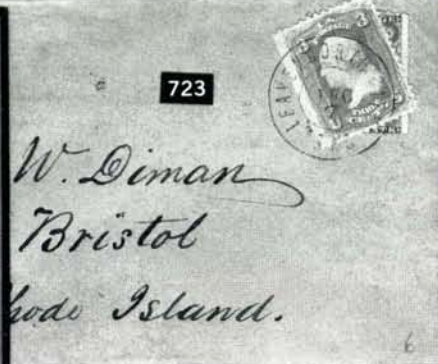 3 3
LEAV
723
W. Diman
Bristol
hode Island.
6